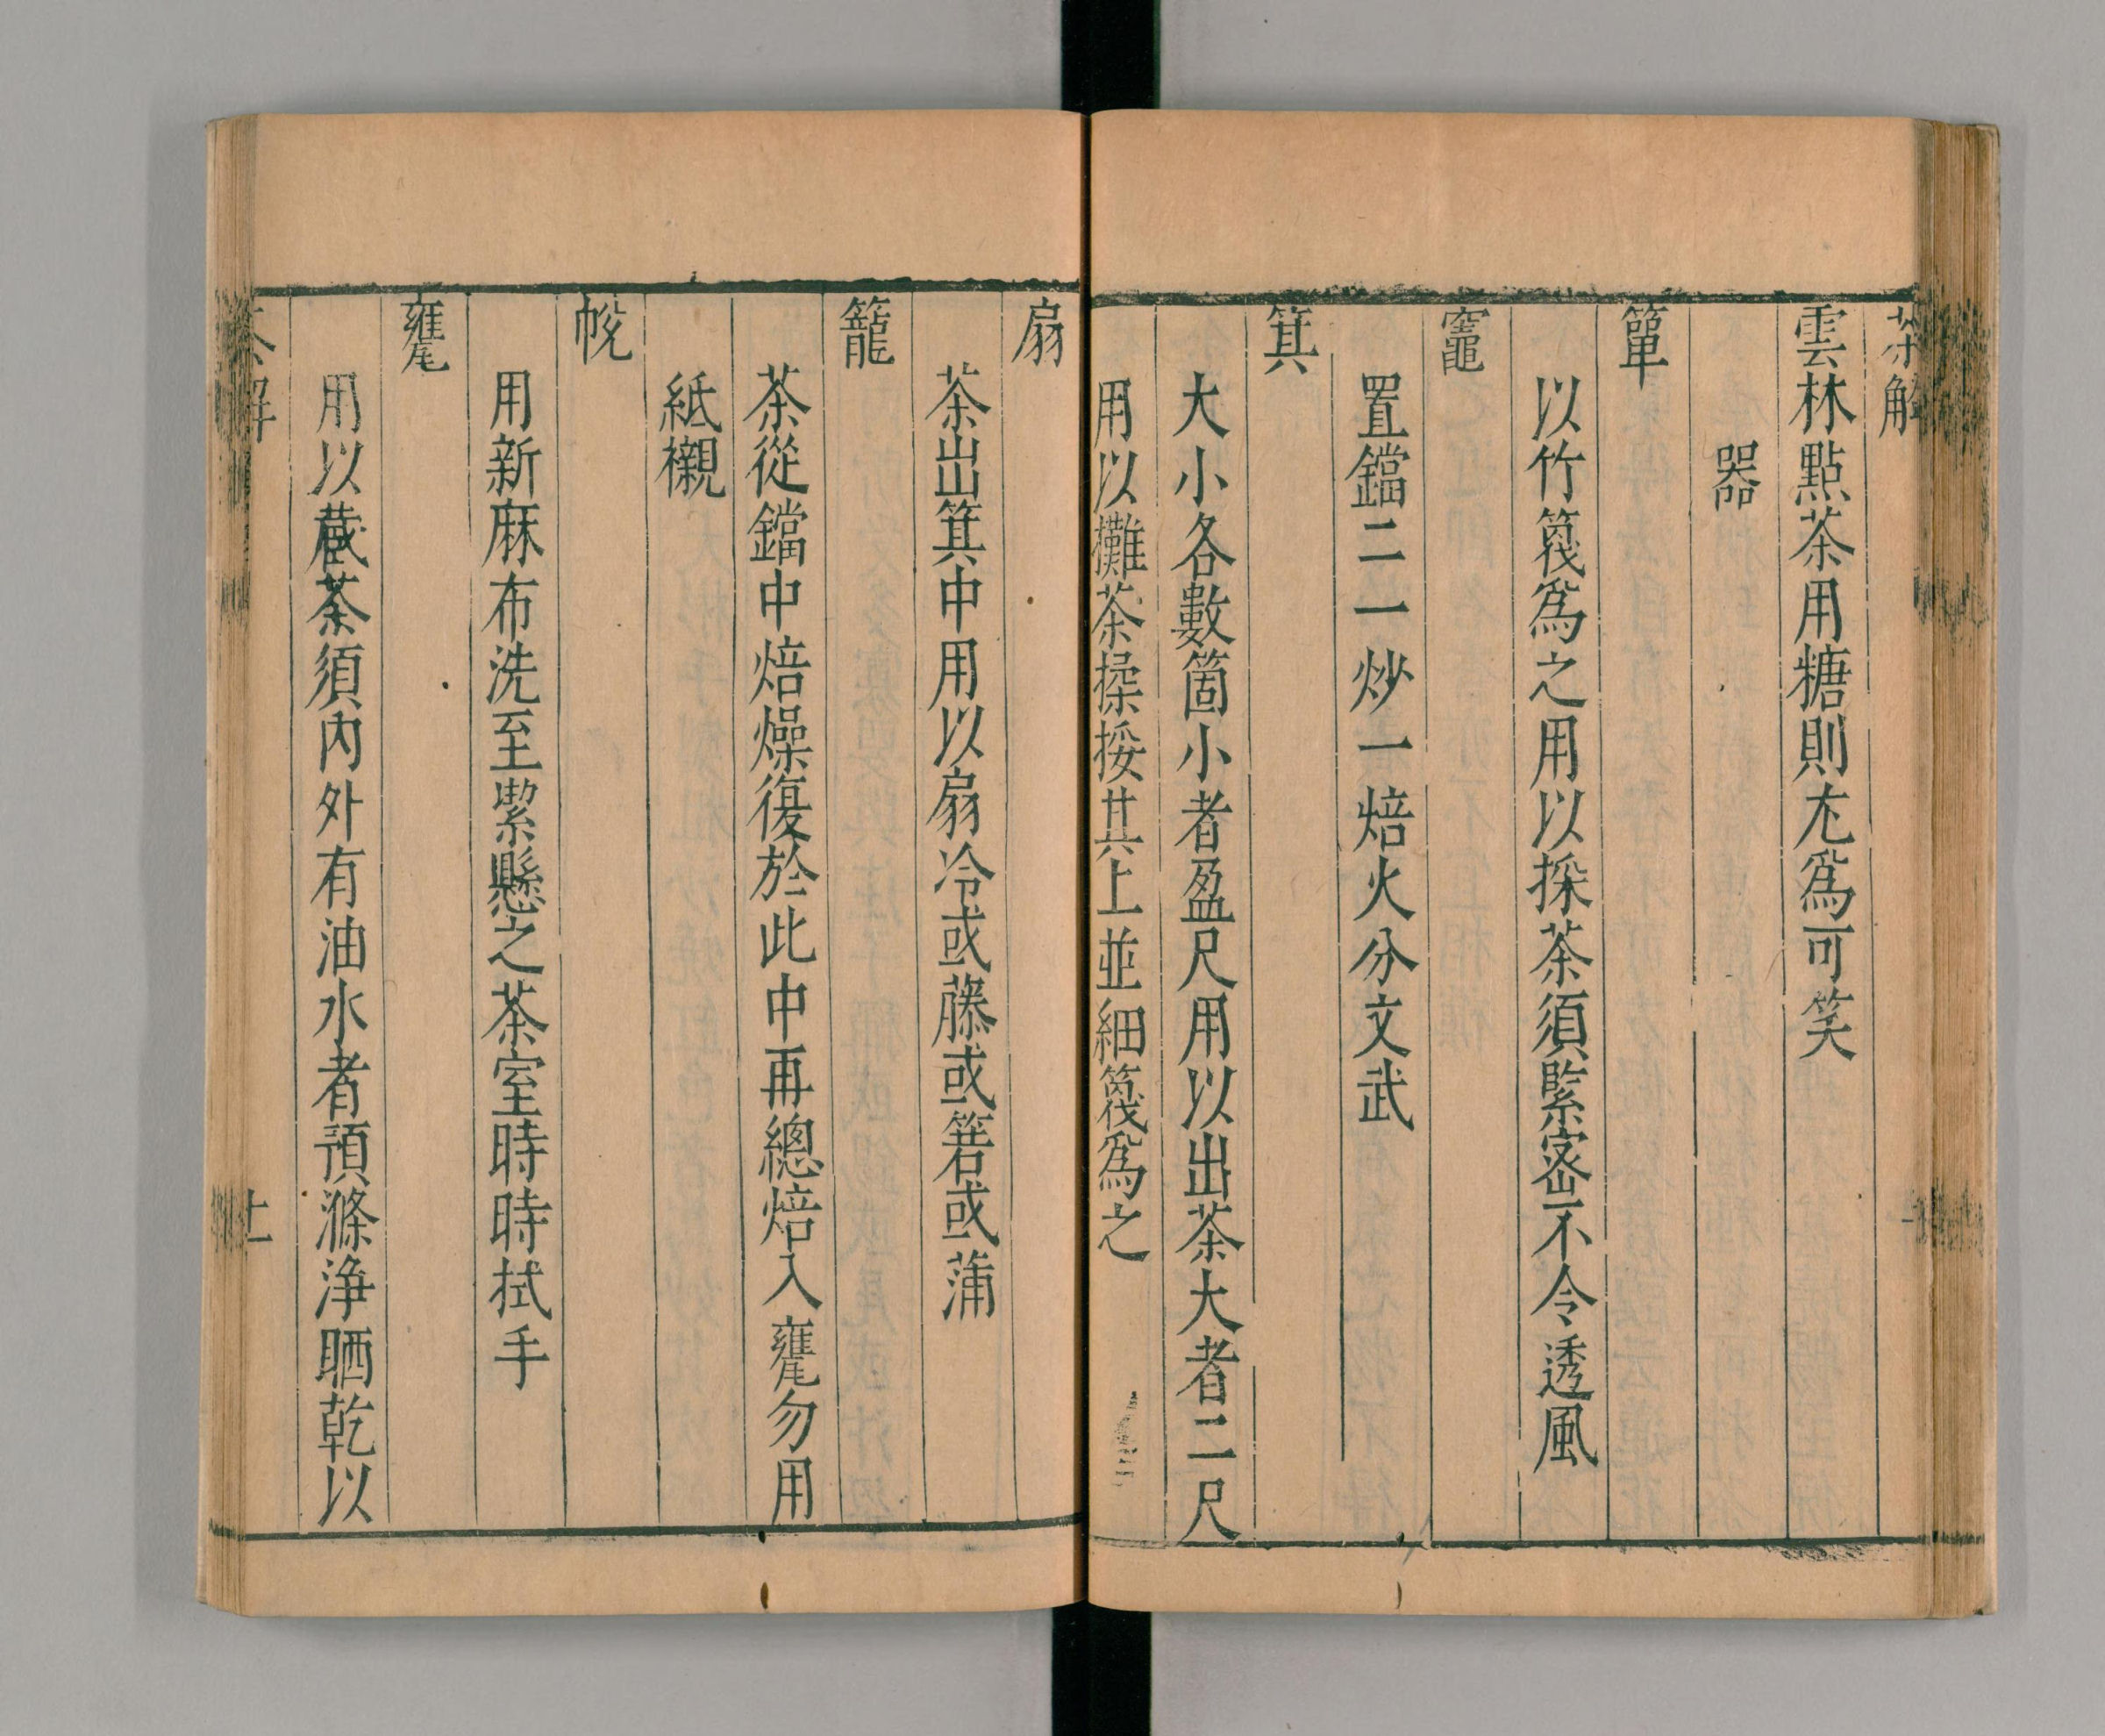 茶解
雲林點茶用糖則尢爲可笑
器
簞
以竹篾爲之用以採茶須緊密不令透風
竈
置鐺二一炒一焙火分文武
箕
大小各數箇小者盈尺用以出茶大者二尺
用以攤茶揉挼其上並細篾爲之
扇
茶出箕中用以扇冷或藤或箬或蒲
籠
茶從鐺中焙燥復於此中再總焙入甕勿用
紙襯
帨
用新麻布洗至潔懸之茶室時時拭手
甕
用以藏茶須內外有油水者預滌淨晒乾以
茶解
十一